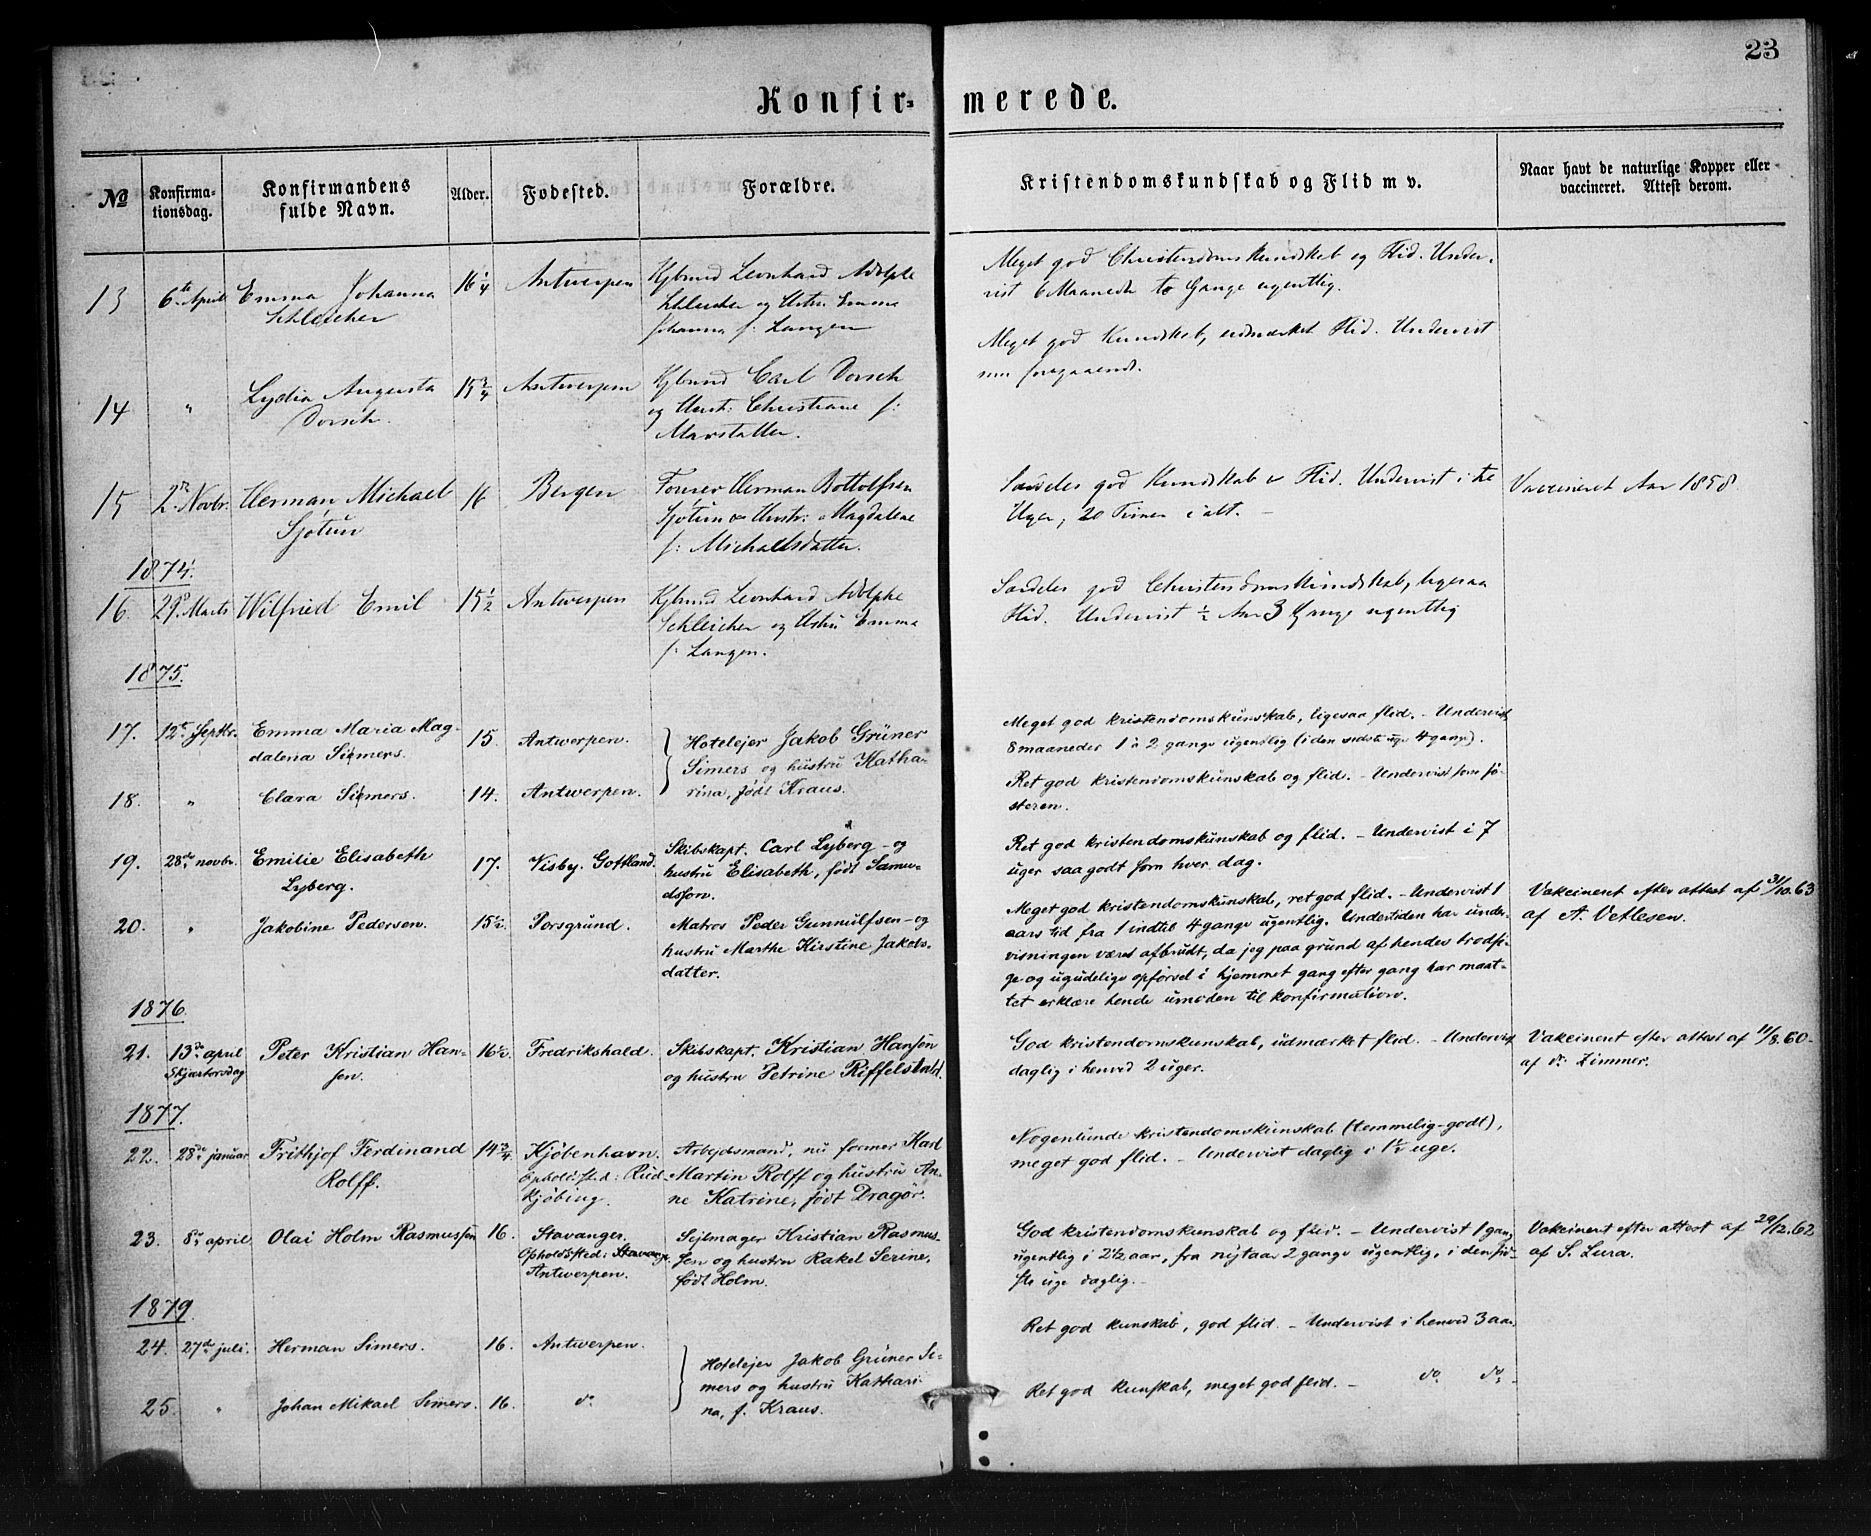 23
Konfir-merede.
No
Konfirma-
tionsdag.
Konfirmandens
fulde Navn.
Alder.
Fødested.
Forældre.
Kristendomskundskab og Flid m v.
Naar havt de naturlige Kopper eller
vaccineret. Attest derom.
13 6te April Emma Johanna 16 1/4 Antwerpen Kjbmd Leonhard Adolphe
Schleicher Schleicher og Ustru Emma
Johanna f: Langen
Meget god Christendomskundskab og Flid. Under-
vist 6 Maaneder to Gange ugentlig.
14 " Lydia Augusta 15 3/4 Antwerpen Kjbmd Carl Dorsch
Dorsch. og Hust: Christiane f:
Marstaller.
Meget god Kundskab, udmærket Flid. Undervist
som foregaaende.
15 2den Novbr. Herman Michael 16 Bergen Herman Bottolfsen
Sjøtun Sjøtun & Hustr: Magdalene
f: Michaelsdatter.
Særdeles god Kundskab & Flid. Undervist i
Uger, 20 Timer i alt. -
Vaccineret Aar 1858
1874.
16. 29de Marts Wilfried Emil 15 1/2 Antwerpen Kjbmd Leonhard Adolphe
Schleicher og Ustru Emma
f: Langen.
Særdeles god Christendomskundskab, ligesaa
Flid. Undervist 1/2 Aar 3 Gange ugentlig
1875.
17. 12te Septbr. Emma Maria Mag- 15. Antwerpen. Hotelejer Jakob Grüner
dalena Simers. Simers og hustru Katha-
rina, født Kraus.
Meget god kristendomskunskab, ligesaa flid. - Undervist
8 maaneder 1 à 2 gange ugentlig (i den sidste uge 4 gange).
18. " Clara Simers. 14. Antwerpen.
Ret god kristendomskunskab og flid. - Undervist som sø-
steren.
19. 28de novbr. Emilie Elisabeth 17. Visby. Gottland. Skibskapt. Carl Lyberg - og
Lyberg. hustru Elisabeth, født Samu-
elsson.
Ret god kristendomskunskab og flid. - Undervist i 7
uger saa godt som hver dag.
20. " Jakobine Pedersen. 15 1/2. Porsgrund. Matros Peder Gunnulfsen - og
hustru Marthe Kirstine Jakobs-
datter.
Meget god kristendomskunskab, ret god flid. - Undervist 1
aars tid fra 1 indtil 4 gange ugentlig. Undertiden har under-
visningen været afbrudt, da jeg paa grund af hendes trodsi-
ge og ugudelige opførsel i hjemmet gang efter gang har maat-
tet erklære hende umoden til konfirmation.
Vakcineret efter attest af 31/10.63
af A. Vetlesen.
1876.
21. 13de april Peter Kristian Han- 16 1/2. Fredrikshald. Skibskapt. Kristian Hansen
Skjærtorsdag sen. og hustru Petrine Riffelsindt.
God kristendomskunskab, udmærket flid. - Undervist
daglig i henved 2 uger.
Vakcineret efter attest af 11/8.60-
af dr: Zimmer.
1877.
22. 28de januar Frithjof Ferdinand 14 3/4. Kjöbenhavn. Arbejdsmand, nu former Karl
Rolff. Opholdsted: Rud- Martin Rolff og hustru An-
kjöbing. ne Katrine, født Dragör.
Nogenlunde kristendomskunskab (temmelig godt),
meget god flid. - Undervist daglig i 1 1/2 uge.
23. 8de april Olai Holm Rasmussen 16. Stavanger. Sejlmager Kristian Rasmus-
Opholdssted: Stavanger. sen og hustru Rakel Serine,
Antwerpen. født Holm.
God kristendomskunskab og flid. - Undervist 1 gang
ugentlig i 2 1/2 aar, fra nytaar 2 gange ugentlig, i den sid-
ste uge daglig. -
Vakcineret efter attest af 29/12.62
af S. Lura.
1879.
24. 27de juli. Herman Simers. 16. Antwerpen.
Hotelejer Jakob Grüner Si-
mers og hustru Kathari-
na, f. Kraus.
Ret god kunskab, god flid. - Undervist i henved 3 aar.
25. " Johan Mikael Simers. 16. do
Ret god kunskab, meget god flid. - do do -